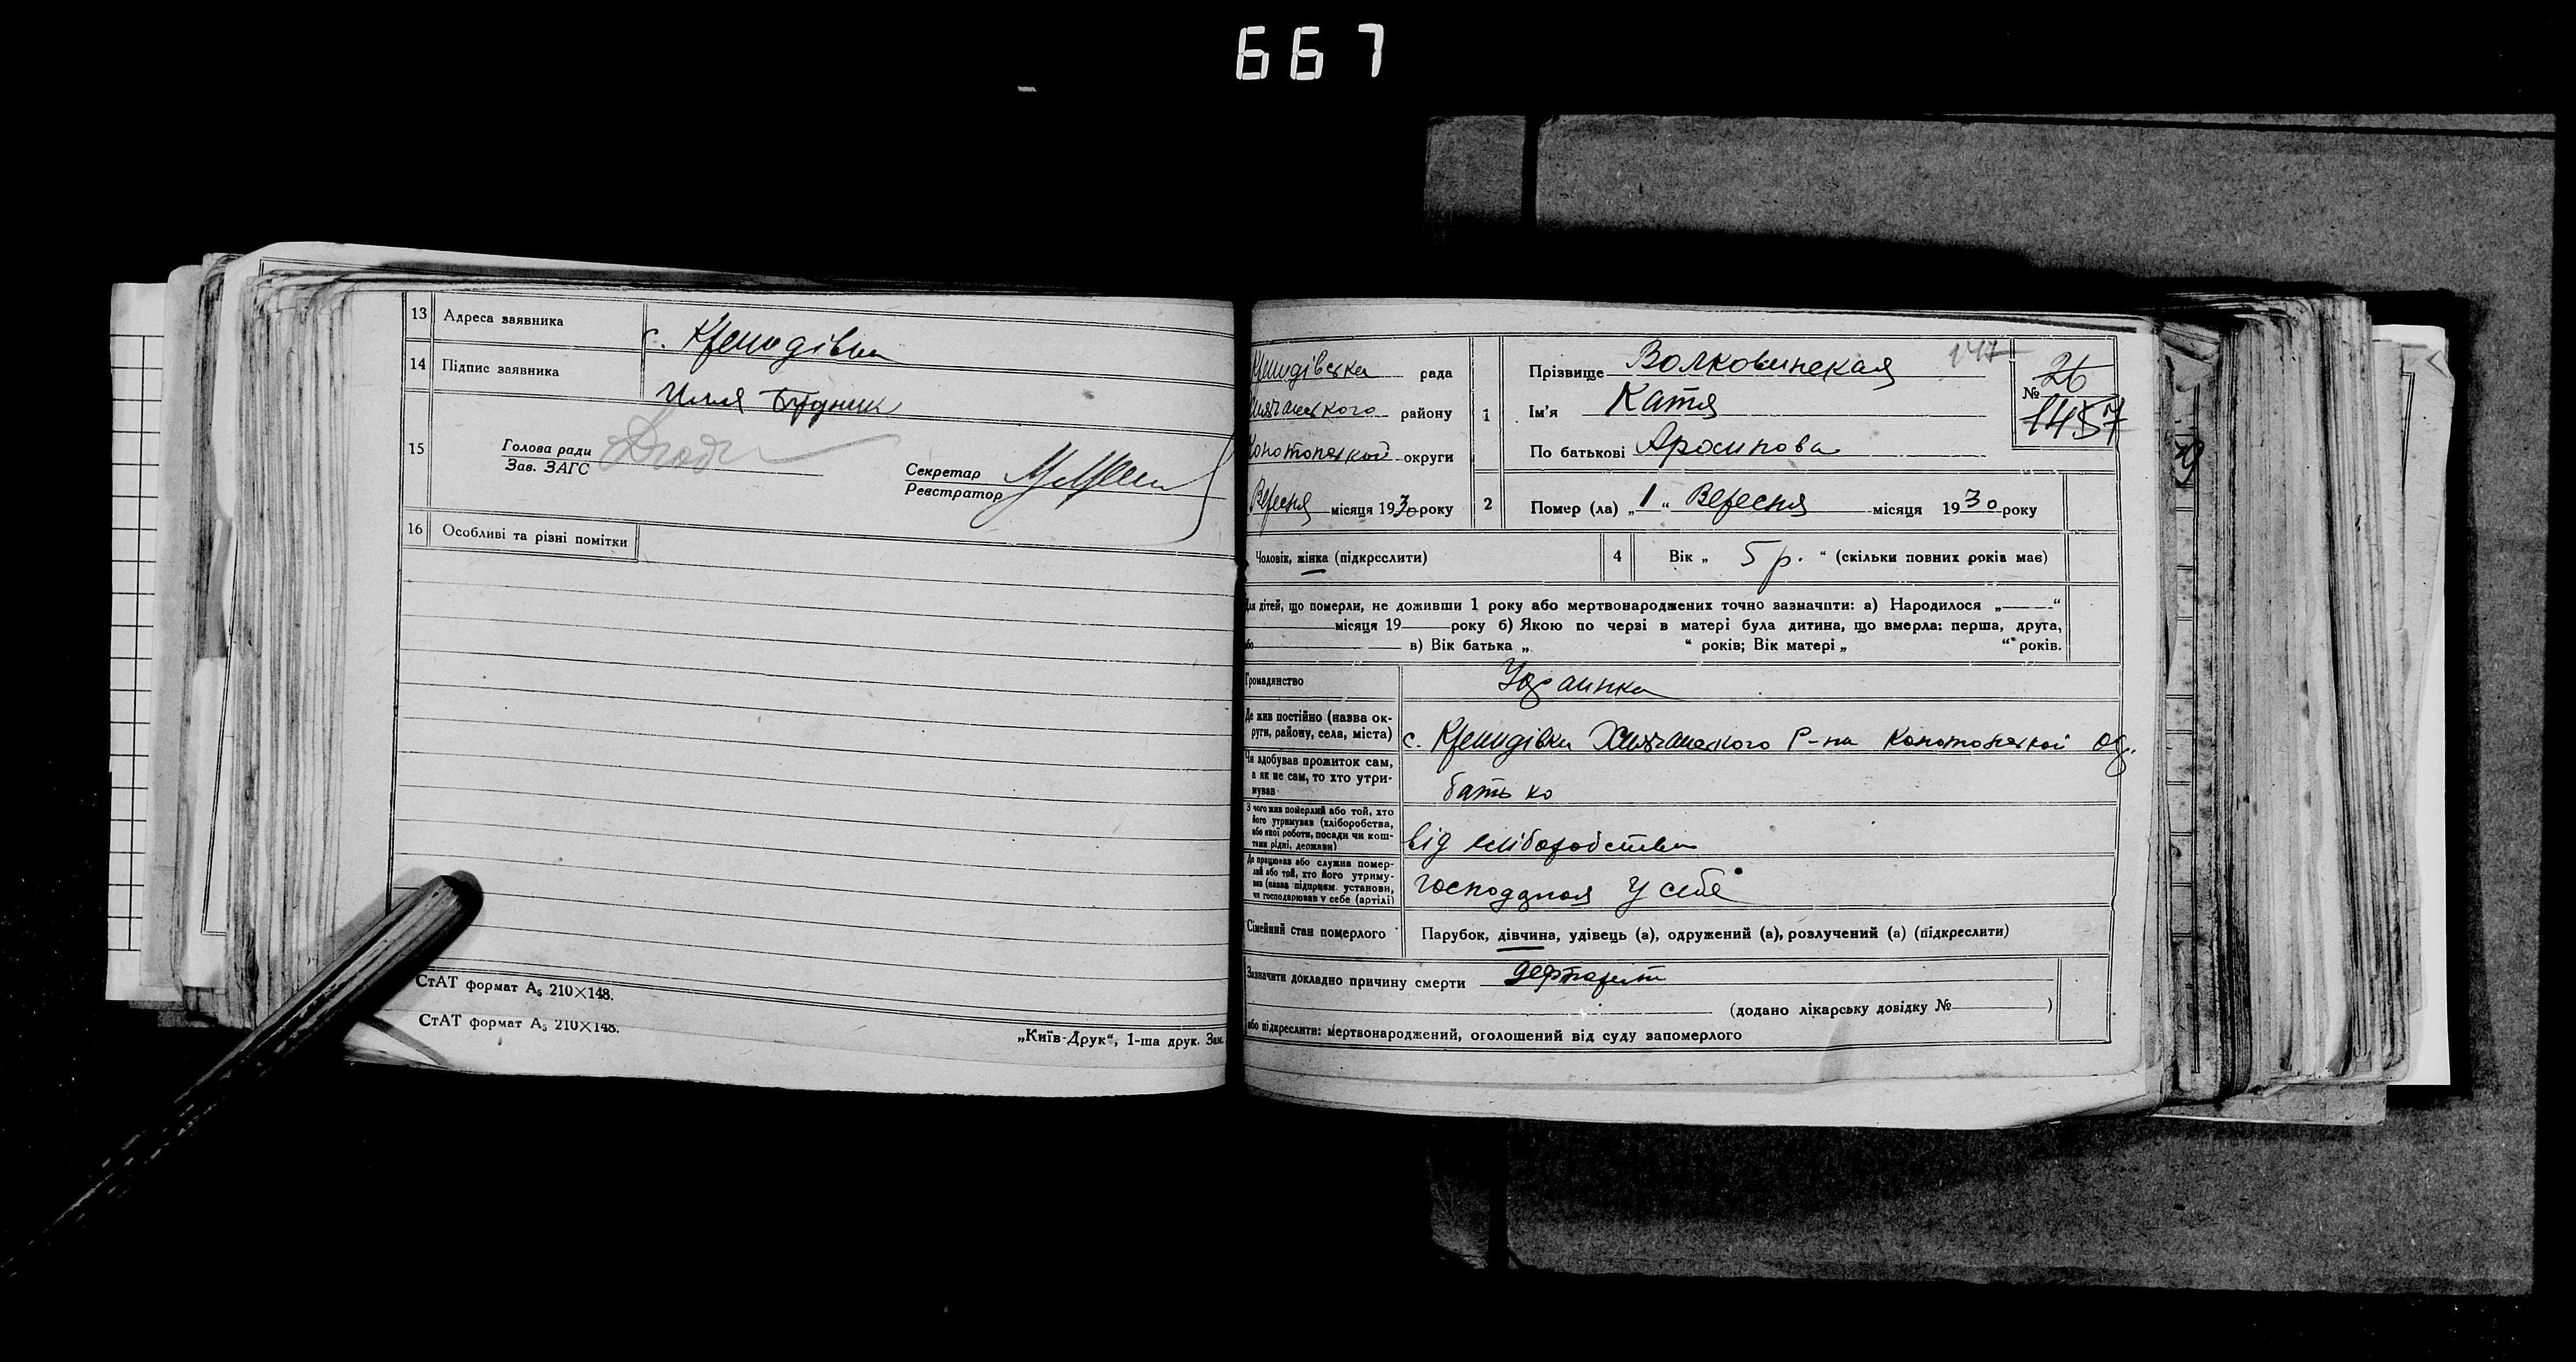 667
13 Адреса заявника с. Кремидівка
14 Підпис заявника Илля Будник
15 Голова ради
Зав. ЗАГС
Секретар
Реєстратор
16 Особливі та різні помітки
СтАТ формат А₅ 210×148.
СтАТ формат А₅ 210×148.
„Київ-Друк“, 1-ша друк. Зам.
рада
району
Конотопской округи
Вересня місяця 1930 року
1 Прізвище Волковинская
Ім'я Катя
По батькові
147
№ 26
1457
2 Помер (ла) „1“ Вересня місяця 1930 року
Чоловік, жінка (підкреслити)
4 Вік „5 р.“ (скільки повних років має)
Для дітей, що померли, не доживши 1 року або мертвонароджених точно зазначити: а) Народилося „ “
місяця 19 року б) Якою по черзі в матері була дитина, що вмерла: перша, друга,
або в) Вік батька „ “ років; Вік матері „ “ років.
Громадянство Украинка
Де жив постійно (назва ок-
руги, району, села, міста) с. Р-на Конотопской окр.
Чи здобував прожиток сам,
а як не сам, то хто утри-
мував батько
З чого жив померлий або той, хто
його утримував (хліборобства,
або якої роботи, посади чи кош-
тами рідні, держави) від хліборобства
Де працював або служив помер-
лий або той, хто його утриму-
вав (назва підприєм. установи,
чи господарював у себе (артілі) у себе
Сімейний стан померлого Парубок, дівчина, удівець (а), одружений (а), розлучений (а) (підкреслити)
Зазначити докладно причину смерти
(додано лікарську довідку № )
або підкреслити: мертвонароджений, оголошений від суду запомерлого